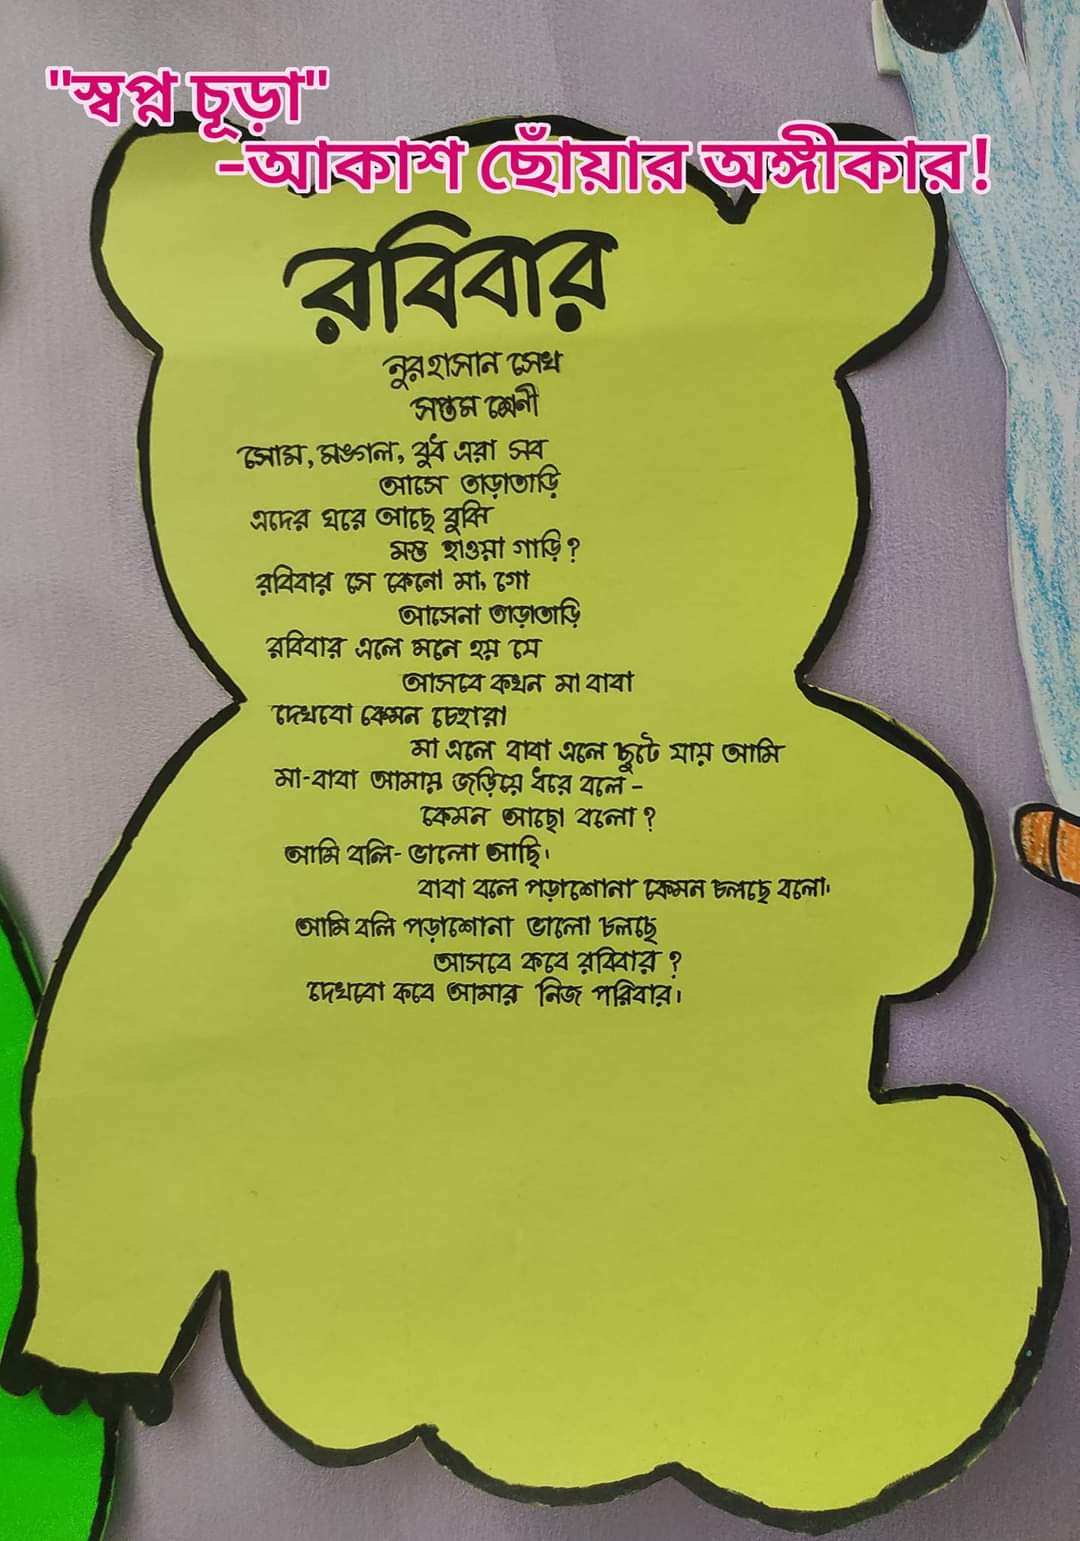 "স্বপ্ন চূড়া"
-আকাশ ছোঁয়ার অঙ্গীকার!
রবিবার
নুরহাসান সেখ
সপ্তম শ্রেণী
সোম, মঙ্গল, বুধ এরা সব
আসে তাড়াতাড়ি
এদের ঘরে আছে বুঝি
মস্ত হাওয়া গাড়ি?
রবিবার সে কেনো মা, গো
আসেনা তাড়াতাড়ি
রবিবার এলে মনে হয় যে
আসবে কখন মা বাবা
দেখবো কেমন চেহারা
মা এলে বাবা এলে ছুটে যায় আমি
মা-বাবা আমায় জড়িয়ে ধরে বলে -
কেমন আছো বলো?
আমি বলি- ভালো আছি।
বাবা বলে পড়াশোনা কেমন চলছে বলো।
আমি বলি পড়াশোনা ভালো চলছে
আসবে কবে রবিবার?
দেখবো কবে আমার নিজ পরিবার।